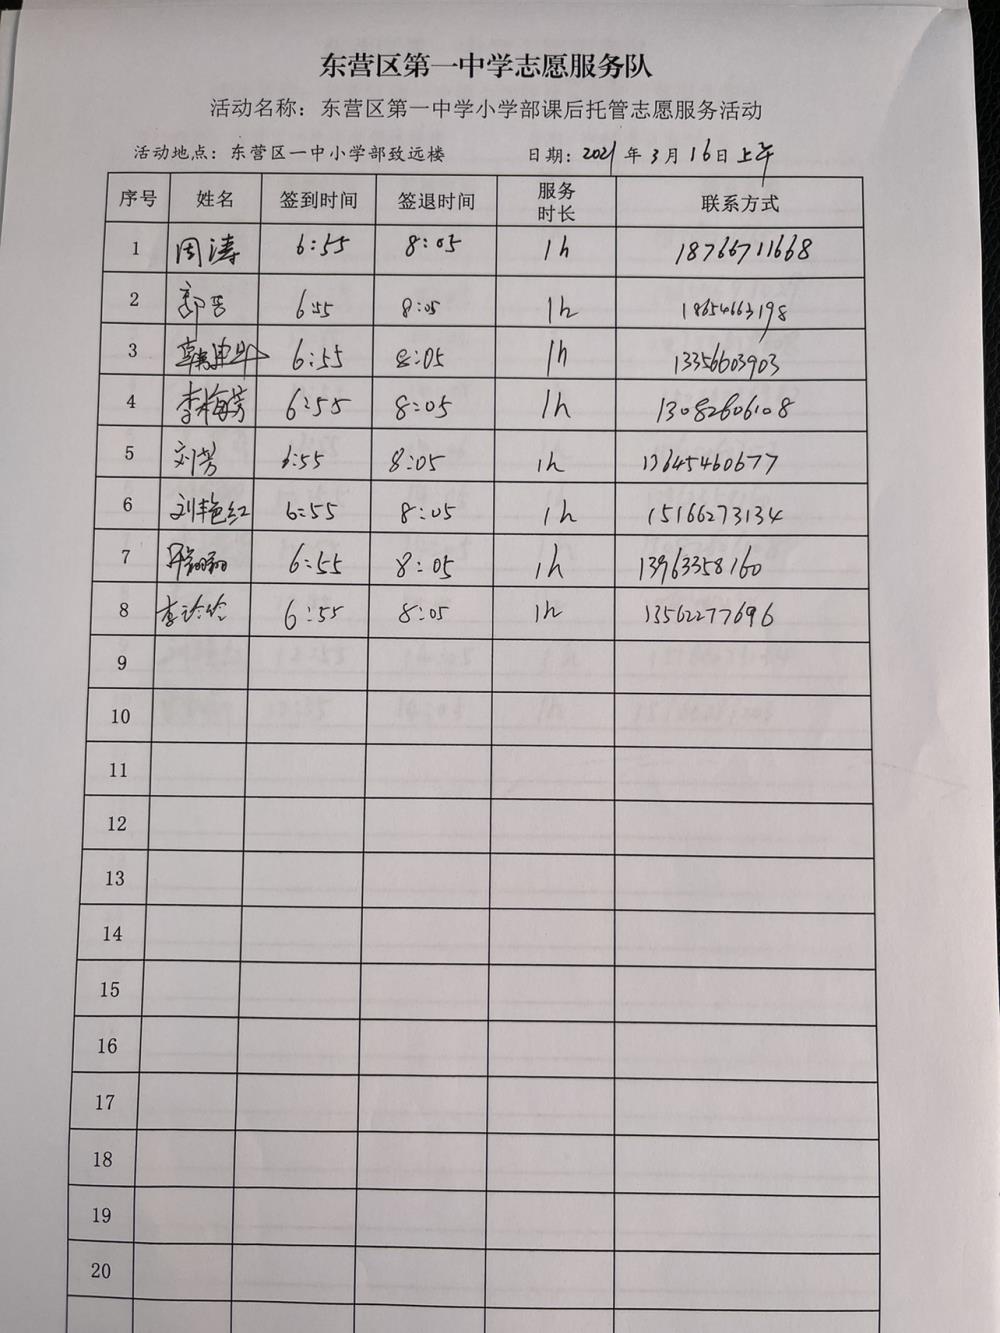 东营区第一中学志愿服务队
活动名称：东营区第一中学小学部课后托管志愿服务活动
活动地点：东营区一中小学部致远楼 日期：2021年3月16日上午
序号 姓名 签到时间 签退时间 服务时长 联系方式
1 周涛 6:55 8:05 1h 18766711668
2 郭芳 6:55 8:05 1h 18654663198
3 6:55 8:05 1h 13356603903
4 李梅芳 6:55 8:05 1h 13082606108
5 刘芳 6:55 8:05 1h 13645460677
6 刘艳红 6:55 8:05 1h 15166273134
7 6:55 8:05 1h 13963358160
8 李玲玲 6:55 8:05 1h 13562277696
9
10
11
12
13
14
15
16
17
18
19
20